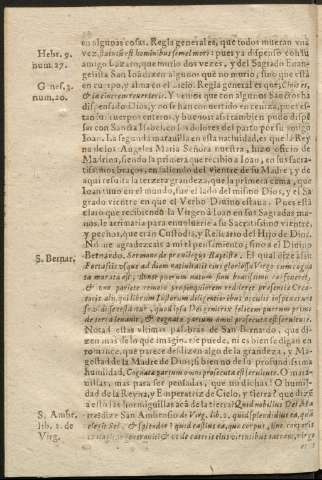 en algunas cosas. Regla general es, que todos mueran vna
Hebr. 9.
num. 27.
vez, statutum est hominibus semel mori: pues ya dispensò con su
amigo Lazaro, que murio dos vezes, y del Sagrado Euan-
gelista San Ioã dizen algunos què no murio, sino que està
en cuerpo, y alma en el cielo. Regla general es que,
Genes. 3.
num. 20.
& in cinerem reuerteris. Y vemos que con algunos Sanctos ha
dispensado Dios, y no se han conuertido en ceniza, pues es-
tan sus cuerpos enteros, y
sar con Sancta Isabel, en los dolores del parto por su amigo
Ioan. La segunda marauilla en esta natiuidad, es que la Rey-
na de los Angeles Maria Señora nuestra, hizo oficio de
Madrina, siendo la primera que recibio a Ioan, en sus sacra-
tissimos braços, en saliendo del vientre de su Madre; y de
aqui resulta la tercera grandeza, que la primera cama, que
Ioan tuuo en el mundo, fue el lado del mismo Dios, y el Sa-
grado vientre en que el Verbo Diuino estaua. Pues està
claro que recibiendo la Virgen à Ioan en sus Sagradas ma-
nos, le arrimaria para emboluerle a su Sacratissimo vientre,
y pechos, que eran Custodia, y Relicario del Hijo de Dios.
No me agradezcais a mi el pensamiento; sino a el Diuino
S. Bernar.
Bernardo, Sermone de priuilegijs Baptistæ. El qual dize assi:
Fortassis vsque ad diem natiuitatis eius gloriosa Virgo cum cogna-
ta morata est; donec puerum natum sinu beatissimo
&
prima
de terra leuauit, & cognatæ partum omni prosecuta est seruitute.
Notad estas vltimas palabras de San Bernardo, que di-
zen mas de lo que imaginarse puede, ni es bien se digan en
romance, que parece deslizen algo de la grandeza, y Ma-
gestad de la Madre de Dios, si bien no de la profundissima
humildad, Cognatæ partum omni prosecuta est seruitute. O mara-
uillas, mas para ser pensadas, que no dichas! O humil-
dad de la Reyna, y Emperatriz de Cielo, y tierra? que dize
a esto las hormiguillas acà de la tierra? Quid nobilius Dei Ma-
S. Ambr.
lib. 2. de
Virg.
tre? dize San Ambrosio de Virg. lib. 2. quid splendidius ea, quã
elegit splendor? quid castius ea, quæ corpus, sine corporis
contagione generauit? & de cæteris eius virtutibus